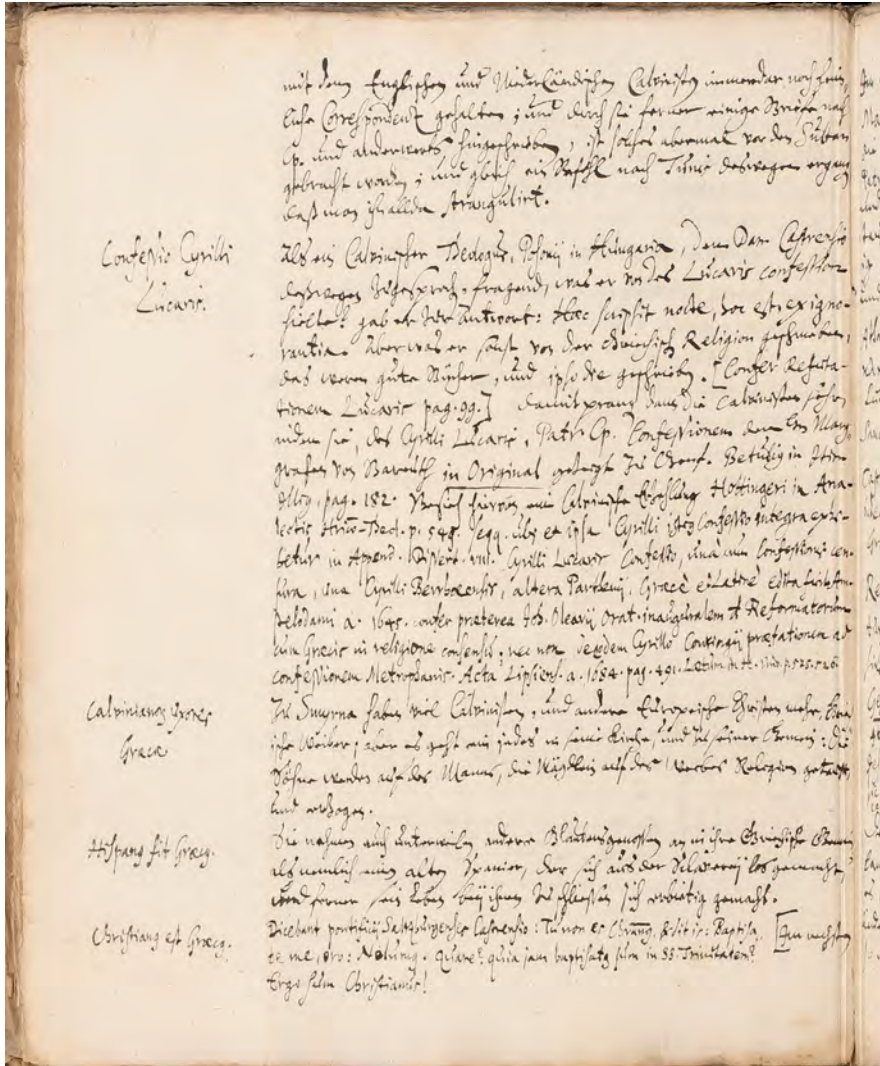 mit denen Englischen und Niederländischen Calvinisten immerdar noch
liche Correspondentz gehalten; und durch sie ferner einige Briefe nach
Cp. und anderwerts hingeschrieben, ist solches abermal vor den Sultan
gebracht worden; und gleich ein Befehl nach Tunis deswegen ergangen
daß man ihn allda strangulirt.
Confessio Cyrilli
Lucaris.
Als ein Calvinischer Theologus, Posonij in Hungaria, dem Dam. Castrensio
deßwegen zugesprochen, fragend, was er von des Lucaris confession
hielte? gab er zur Antwort: Haec scripsit nocte, hoc est, ex igno-
rantia. Aber was er sonst von der Griechischen Religion geschrieben,
das weren gute Bücher, und ipso die geschrieben. [Confer Refuta-
tionem Lucaris pag. 99.] damit prangen dann die Calvinisten sehr,
indem sie des Cyrilli Lucaris, Patr. Cp. Confessionem dem Marg-
grafen von Bareuth in Original gezeigt zu Genf. Betulig in
pag. 182. Besiehe hievon eine Calvinische Erzehlung Hottingeri in Ana-
lectis Histor-Theol. p. 548. seqq. ubi et ipsa Cyrilli ista Confessio integra exhi-
betur in Append. Dissert. VIII. Cyrilli Lucaris Confessio, una cum Confessionis cen-
sura, una Cyrilli Berrhoeensis, altera Parthenij, Graecè et Latinè edita fuit Am-
stelodami a. 1645. confer praeterea Joh. Olearij Orat. inauguralem de Reformatorum
cum Graecis in religione consensu; nec non de eodem Cyrillo Conringij praefationem ad
confessionem Metrophanis. Acta Lipsiens. a. 1684. pag. 491.
Calvinianorum uxores
Graecae
Zu Smyrna haben viel Calvinisten, und andere Europeische Christen mehr, Griech-
ische Weiber; aber es geht ein jedes in seine Kirche, und zu seiner Gemein: die
Söhne werden auf des Manns, die Mägdlein auf des Weibes Religion getaufft,
und erzogen.
Hispanus fit Graecus.
Sie nehmen auch unterweilen andere Glaubensgenossen an in ihre Griechische Gemein
als nemlich einen alten Spanier, der sich aus der Sclaverej los gemacht,
und ferner sein Leben bey ihnen zu schliessen sich erbietig gemacht.
Christianus est Graecus.
Dicebant pontificij Saltzburgenses Castrensio: Tu non es Christianus, [Im nechsten
te me, ero: Nolumus. Quare? quia jam baptisatus sum in SS. Trinitatem?
Ergo sum Christianus!